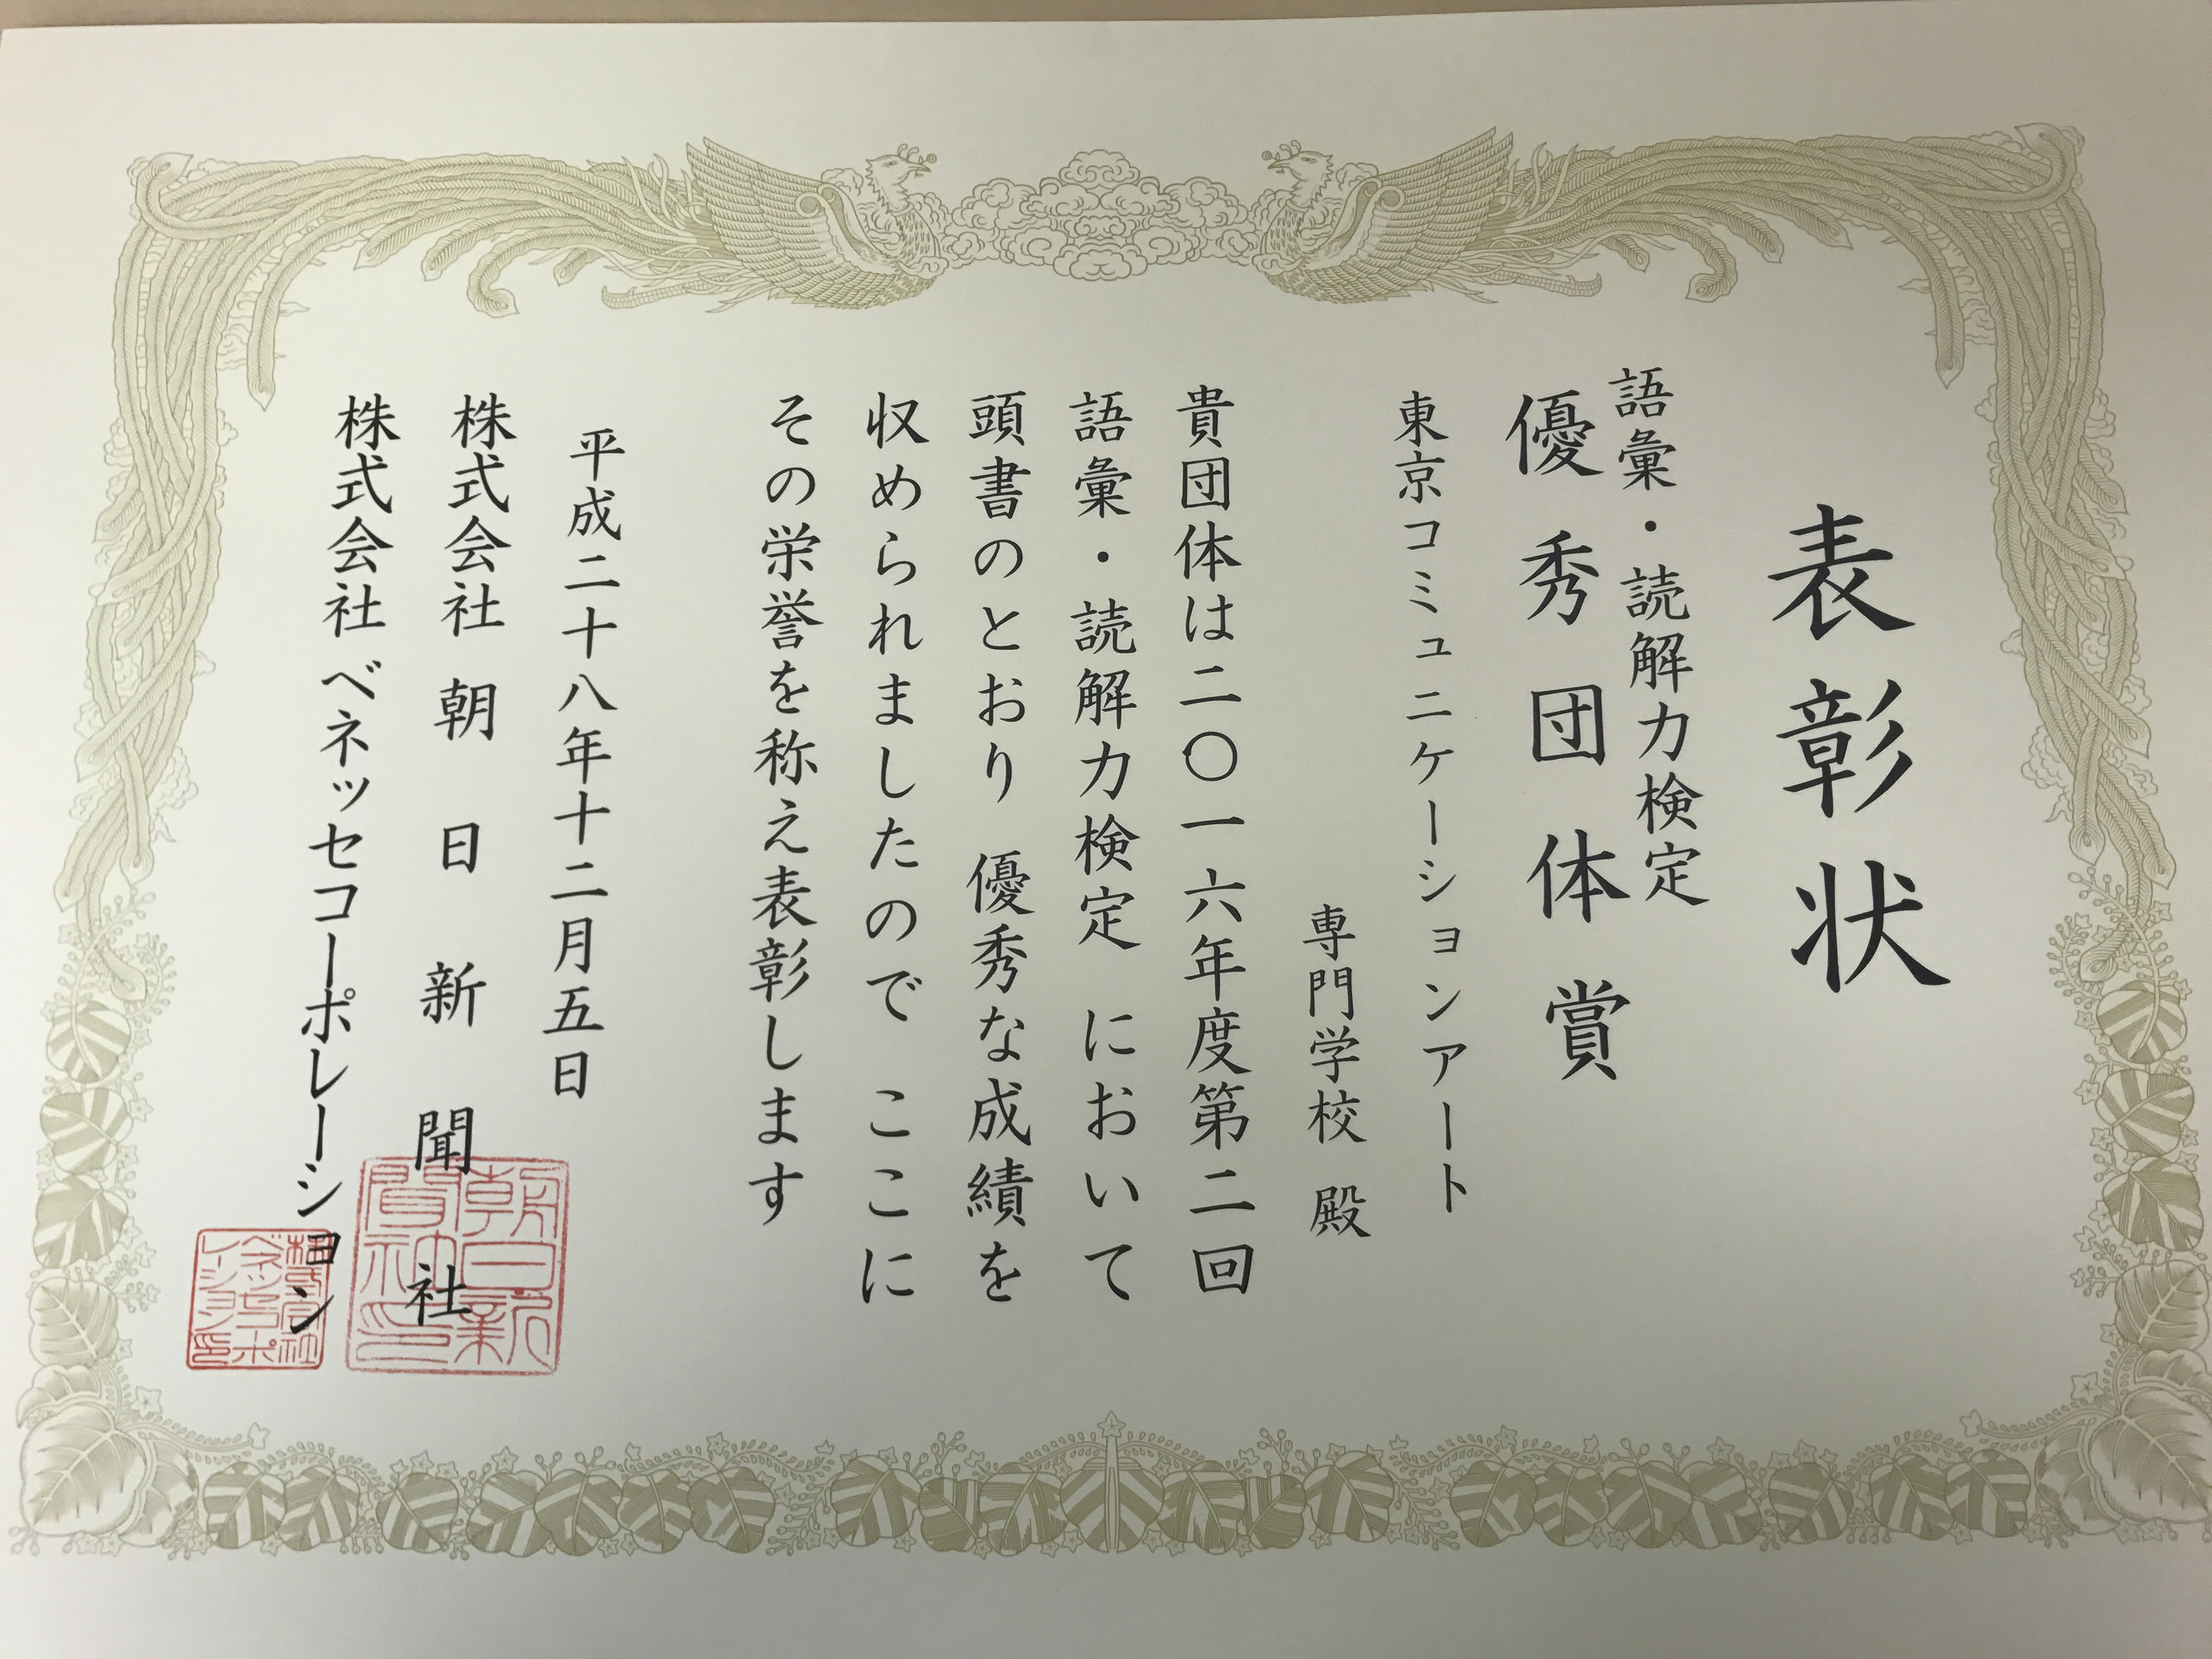 表彰状
語彙・読解力検定
優秀団体賞
東京コミュニケーションアート
専門学校 殿
貴団体は二〇一六年度第二回
語彙・読解力検定 において
頭書のとおり 優秀な成績を
収められましたので ここに
その栄誉を称え表彰します
平成二十八年十二月五日
株式会社 朝日新聞社
株式会社 ベネッセコーポレーション
朝日新聞社印